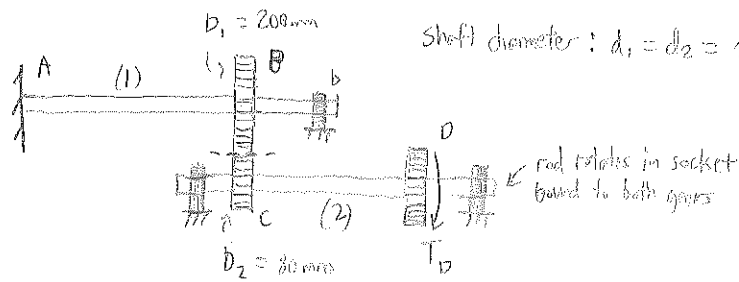 D₁ = 200mm
shaft diameter : d₁ = d₂ =
A
(1)
B
b
D
rod rotates in socket
bound to both gears
C
(2)
T_D
D₂ = 80mm